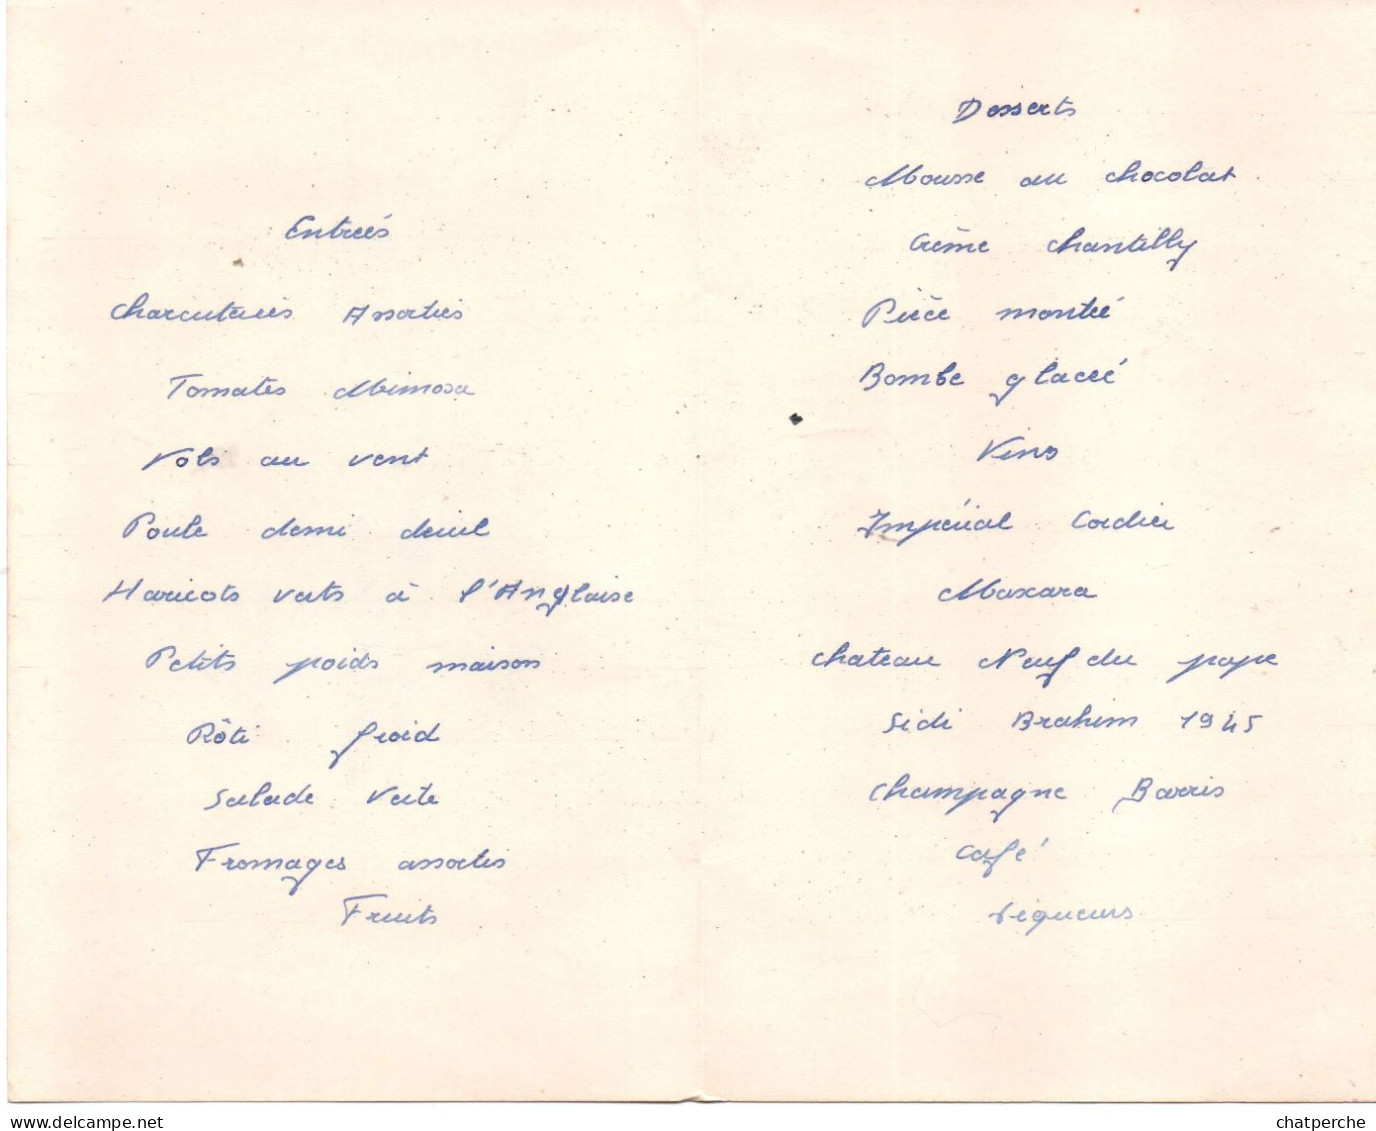 Entrées
Charcuteries Assorties
Tomates Mimosa
Vols au vent
Poule demi deuil
Haricots verts à l'Anglaise
Petits poids maison
Rôti froid
Salade verte
Fromages assortis
Fruits
Desserts
Mousse au chocolat
Crème chantilly
Pièce montée
Bombe glacée
Vins
Impérial Cordier
Maxara
Chateau Neuf du pape
Sidi Brahim 1945
Champagne Barris
Café
Liqueurs
www.delcampe.net
chatperche